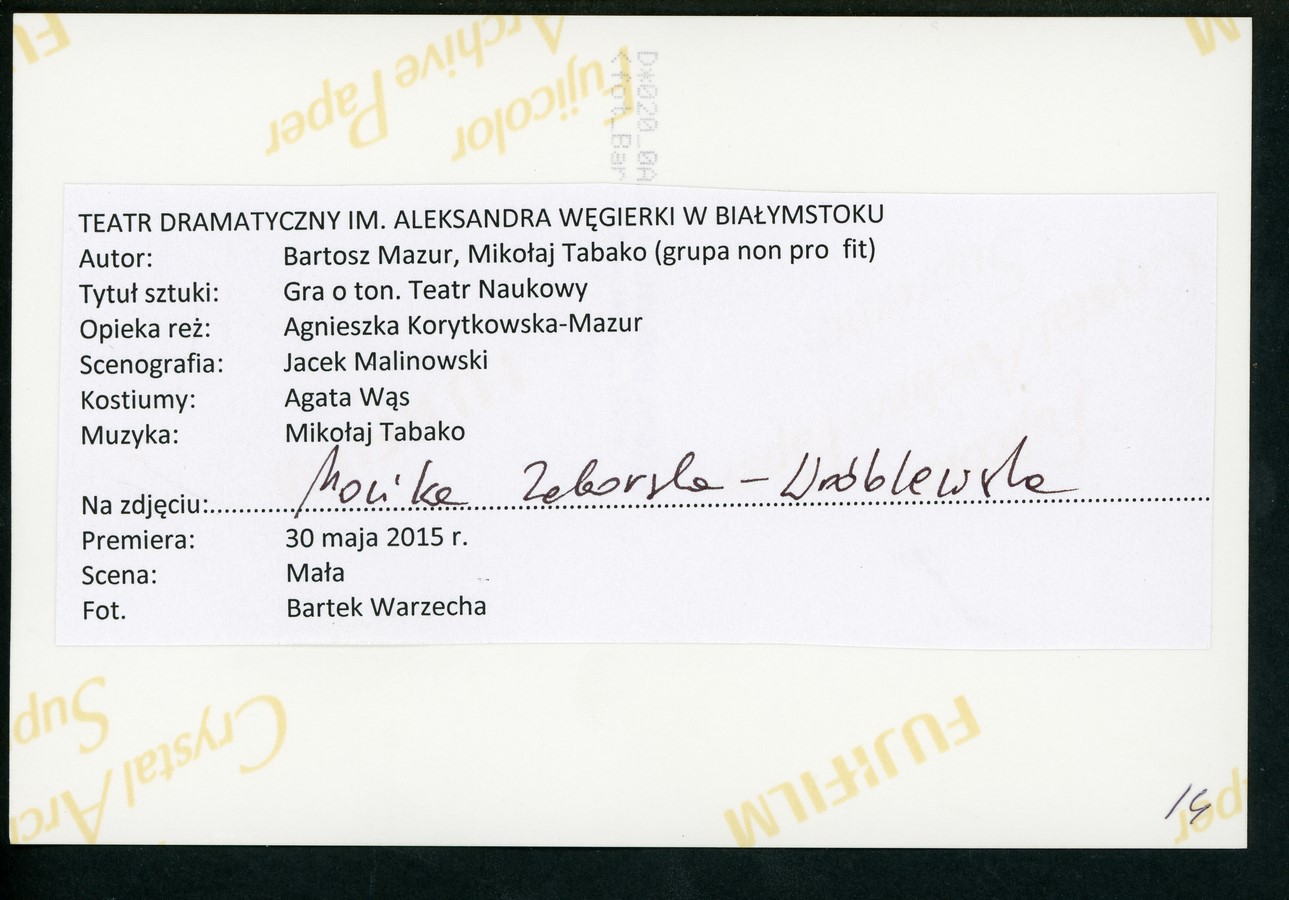 Fujicolor
Archive Paper
D*020_0A
<fot_Bar
TEATR DRAMATYCZNY IM. ALEKSANDRA WĘGIERKI W BIAŁYMSTOKU
Autor: Bartosz Mazur, Mikołaj Tabako (grupa non pro fit)
Tytuł sztuki: Gra o ton. Teatr Naukowy
Opieka reż: Agnieszka Korytkowska-Mazur
Scenografia: Jacek Malinowski
Kostiumy: Agata Wąs
Muzyka: Mikołaj Tabako
Na zdjęciu:..... Monika Zaborska-Wróblewska
Premiera: 30 maja 2015 r.
Scena: Mała
Fot. Bartek Warzecha
Crystal Arch
Sup
FUJIFILM